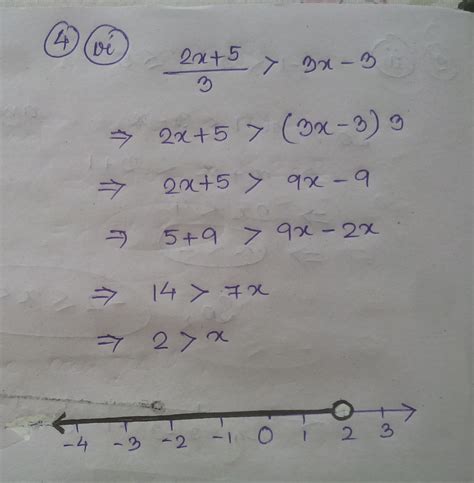 4 vi
(2x+5)/3 > 3x-3
⇒ 2x+5 > (3x-3) 3
⇒ 2x+5 > 9x-9
⇒ 5+9 > 9x-2x
⇒ 14 > 7x
⇒ 2 > x
-4 -3 -2 -1 0 1 2 3